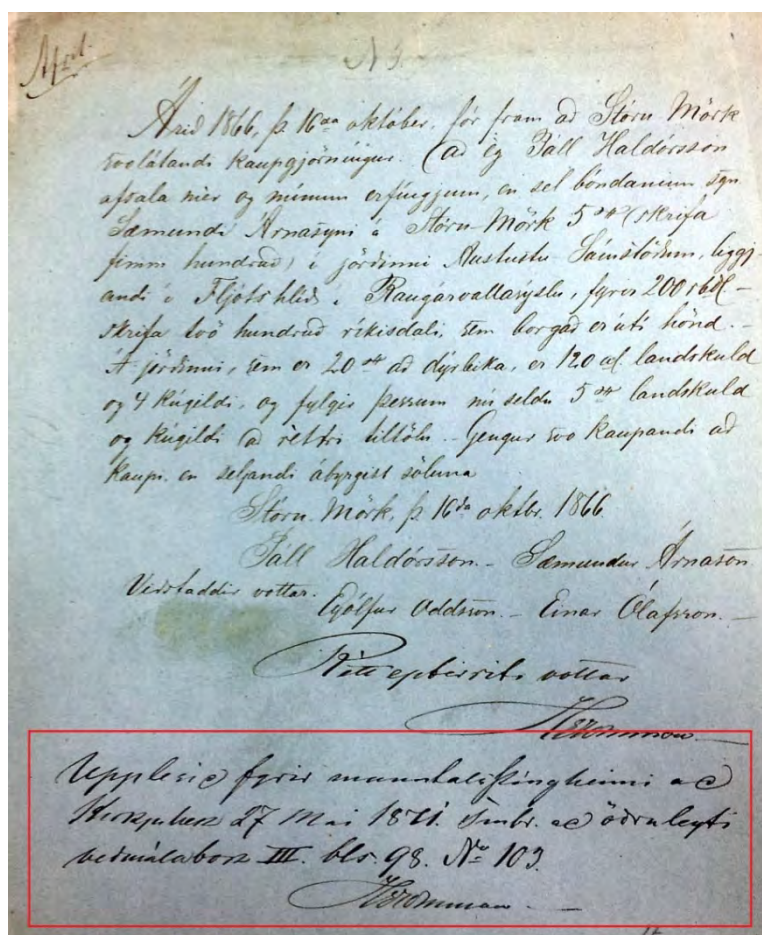 Afrit.
N 3
Árið 1866, þ. 16da október, fór fram að Stóru Mörk
svolátandi kaupgjörníngur. Að ég Páll Haldórsson
afsala mér og mínum erfíngjum, en sel bóndanum sgn
Sæmundi Árnasyni á Stóru-Mörk 5 (skrifa
fimm hundruð) í jörðinni Austustu Sámstöðum, liggj-
andi í Fljótshlíð í Rangárvallasýslu, fyrir 200 rbdl -
skrifa tvö hundruð ríkisdali, sem borgað er út í hönd. -
Af jörðinni, sem er 20 að dýrleika, er 120 al. landskuld
og 4 kúgildi, og fylgir þessum nú seldu 5 landskuld
og kúgildi að réttri tiltölu. - Gengur svo kaupandi að
kaupi, en seljandi ábyrgist söluna
Stóru-Mörk, þ. 16da oktbr. 1866
Páll Haldórsson. - Sæmundur Árnason
Viðstaddir vottar.
Eyólfur Oddsson. - Einar Ólafsson. -
Rétt eptirrit vottar
Upplesið fyrir manntalsþíngheimi að
27 Mai 1871. Innbr. að öðruleyti
veðmálabók III. bls. 98. No 103.